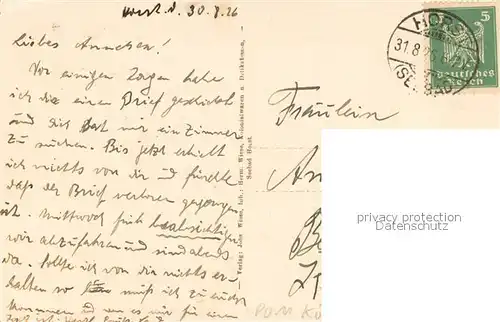 Horst, d. 30.8.26
Liebes Annchen!
Vor einigen Tagen habe
ich dir einen Brief geschickt
und dich bat mir ein Zimmer
zu suchen. Bis jetzt erhielt
ich nichts von dir und fürchte
daß der Brief verloren gegangen
ist. Mittwoch früh beabsichtigen
wir abzufahren und sind abends
da. Sollte ich von dir nichts er-
halten so muß ich zu euch
kommen und wenn es nur für eine
Verlag: Johs Wiese, Inh.: Herm. Wiese, Kolonialwaren u. Delikatessen,
Seebad Horst.
HORST
31.8.26
(SEEBAD)
5
Deutsches Reich
Fräulein
privacy protection
Datenschutz